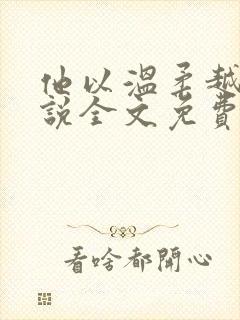 他以溫柔越
說全文免費
看啥都開心